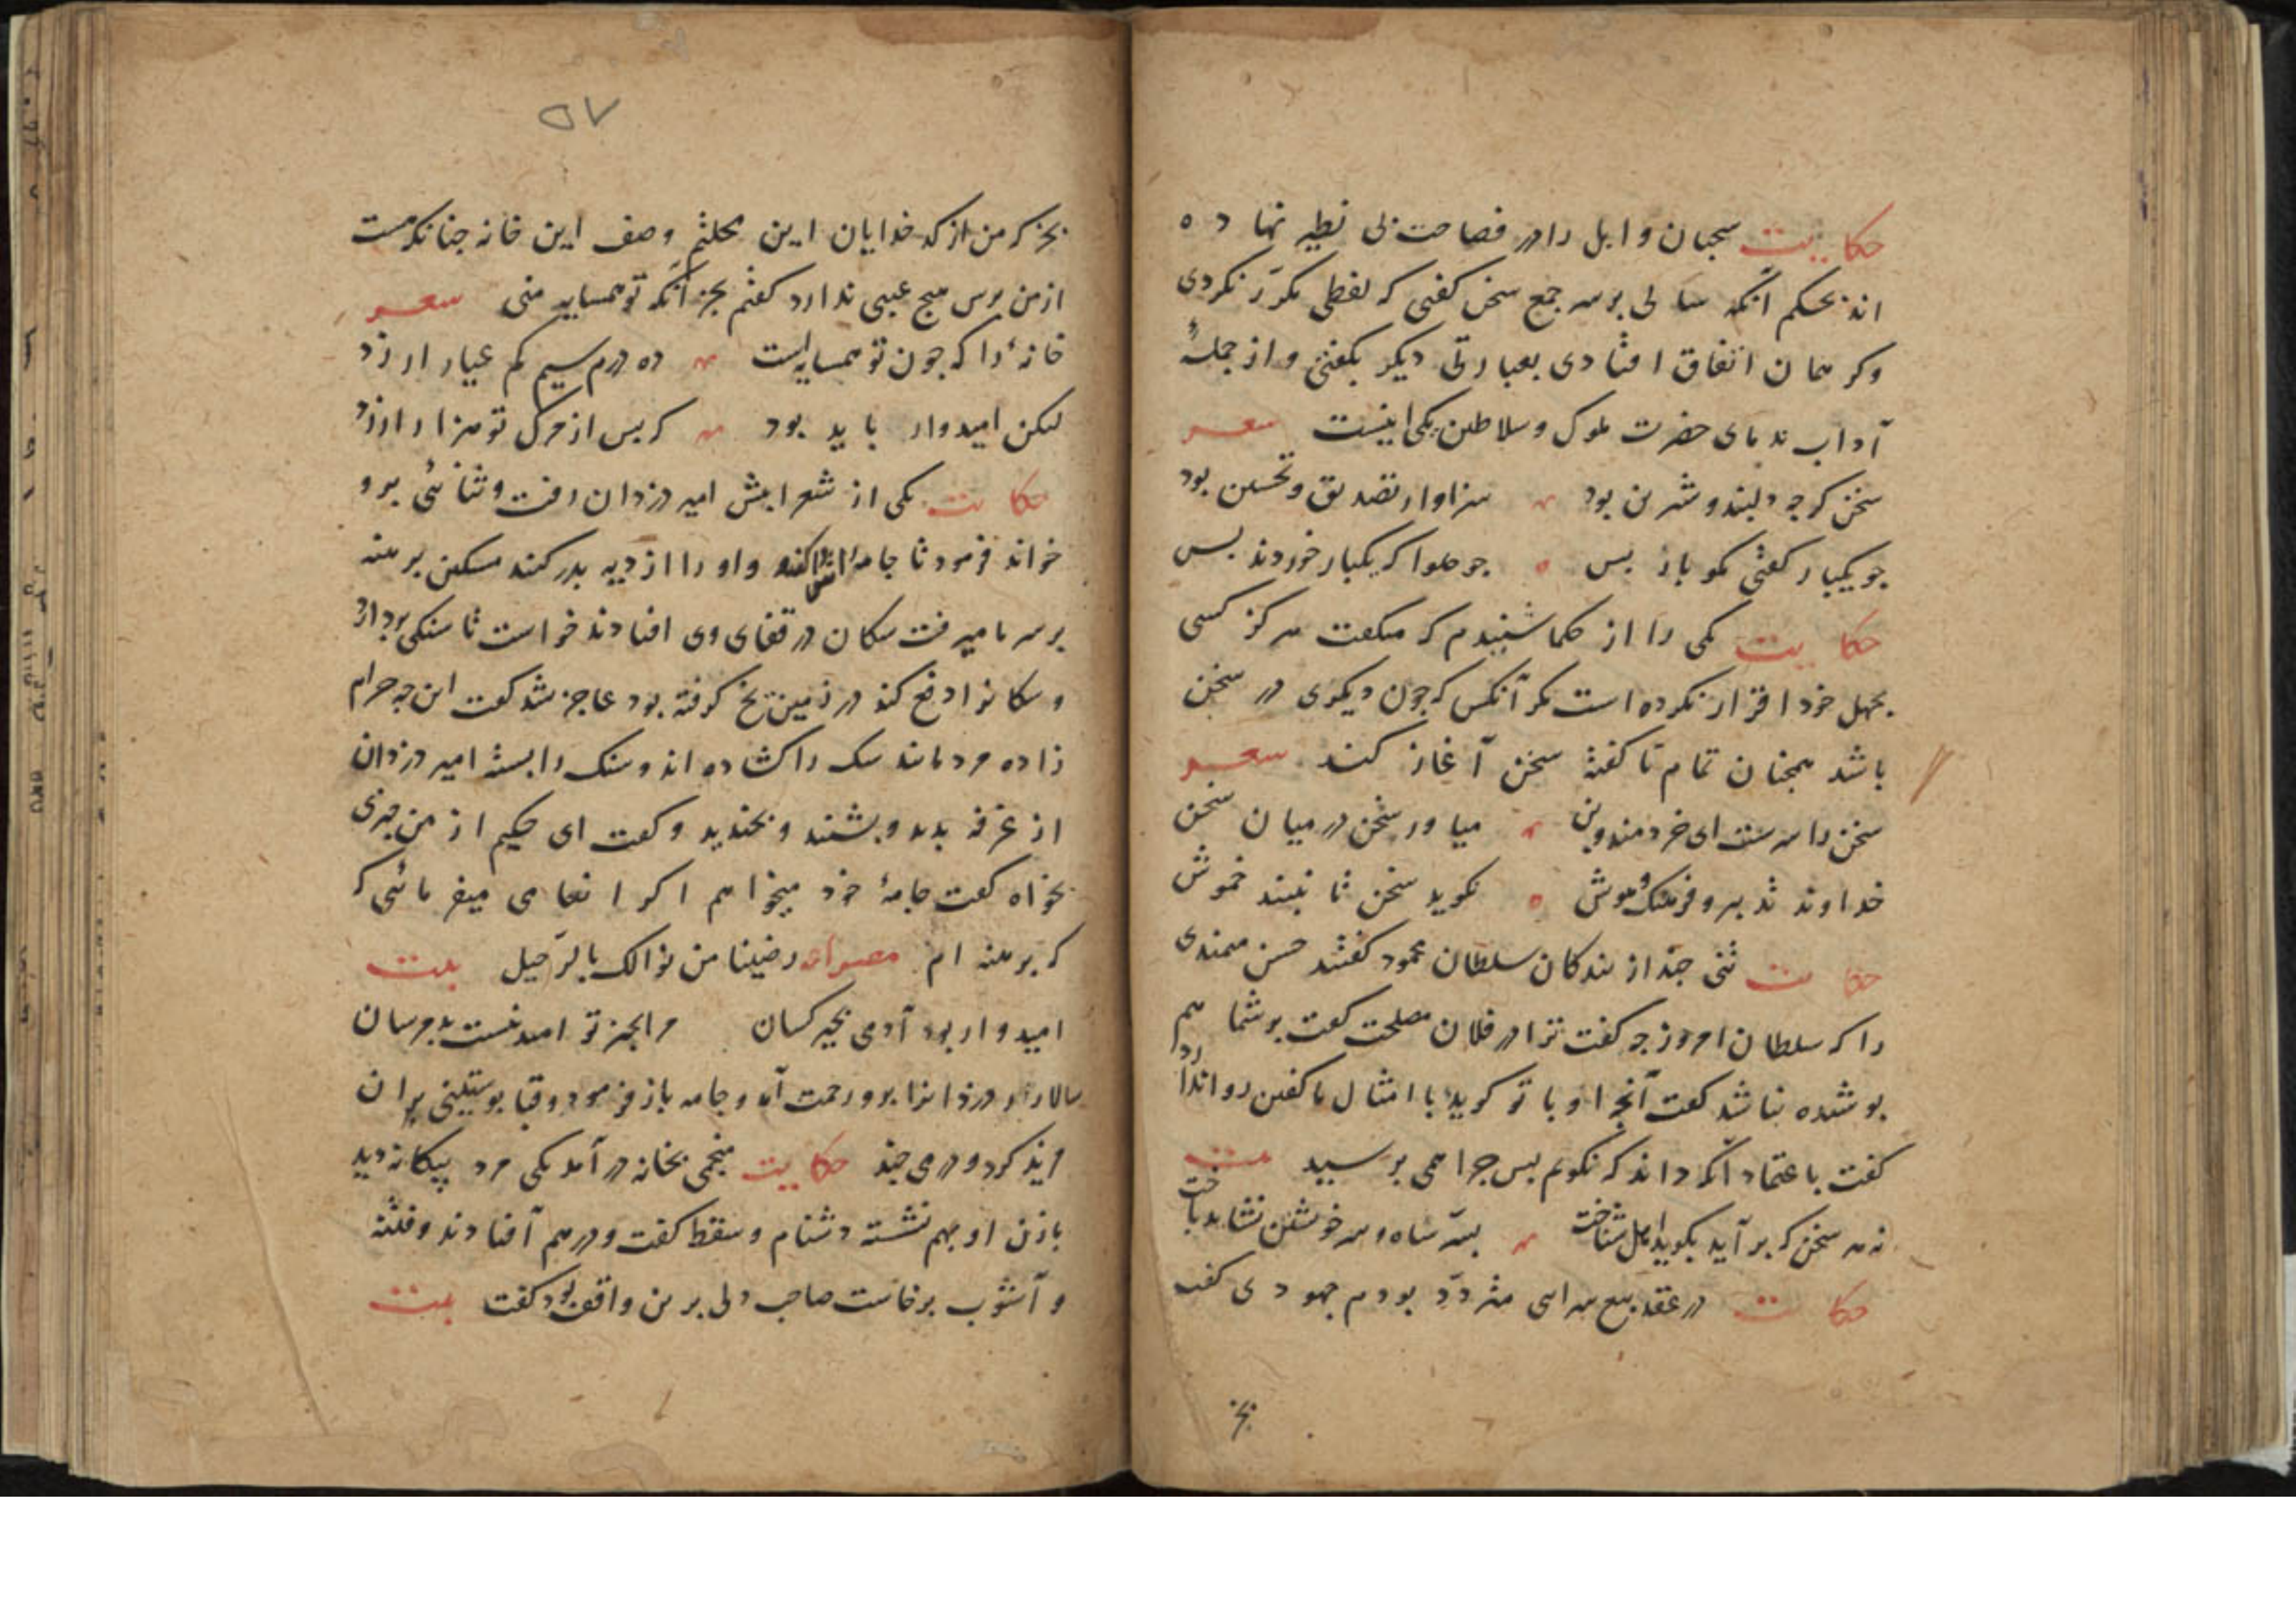 حکایت سحبان وایل را در فصاحت بی نظیر نهاده
اند بحکم آنکه سالی بر سر جمع سخن گفتی که لفظی مکرّر نکردی
وکر همان اتفاق افتادی بعبارتی دیکر بگفتی و از جملهٔ
آداب ندمای حضرت ملوک و سلاطین یکی اینست شعر
سخن کرچه دلبند و شیرین بود سزاوار تصدیق و تحسین بود
چو یکبار گفتی مگو باز پس چو حلوا که یکبار خوردند بس
حکایت یکی را از حکما شنیدم که میگفت هرکز کسی
بجهل خود اقرار نکرده است مکر آنکس که چون دیکری در سخن
باشد همچنان تمام ناگفته سخن آغاز کند شعر
سخن را سرست ای خردمند و بن میاور سخن در میان سخن
خداوند تدبیر و فرهنک و هوش نکوید سخن تا نبیند خموش
حکایت تنی چند از بندکان سلطان محمود گفتند حسن میمندی
را که سلطان امروز چه گفت ترا در فلان مصلحت گفت بر شما هم
پوشیده نباشد گفت آنچه او با تو کوید با امثال ما گفتن روا ندارد
گفت باعتماد آنکه داند که نکویم پس چرا همی پرسید بیت
نه هر سخن که بر آید بکوید اهل شناخت بسرّ شاه و سر خویشتن نشاید باخت
حکایت در عقد بیع سرایی متردّد بودم جهودی گفت
بخر
۵۷
بخر که من از کدخدایان این محلتم وصف این خانه چنانکه هست
از من پرس هیچ عیبی ندارد گفتم بجز آنکه تو همسایه منی شعر
خانهٔ را که چون تو همسایه است ده درم سیم کم عیار ارزد
لیکن امیدوار باید بود که پس از مرک تو هزار ارزد
حکایت یکی از شعرا پیش امیر دزدان رفت و ثنائی برو
خواند فرمود تا جامه کنند و او را از دیه بدر کنند مسکین برهنه
بسرما میرفت سکان در قفای وی افتادند خواست تا سنکی بردارد
و سکانرا دفع کند در زمین یخ گرفته بود عاجز شد گفت این چه حرام
زاده مردمانند سک را کشاده اند و سنک را بسته امیر دزدان
از غرفه بدید و بشنید و بخندید و گفت ای حکیم از من چیزی
بخواه گفت جامهٔ خود میخواهم اکر انعامی میفرمائی که
که برهنه ام مصراع رضینا من نوالک بالرّحیل بیت
امیدوار بود آدمی بخیر کسان مرا بخیر تو امید نیست بد مرسان
سالار دزدانرا برو رحمت آمد و جامه باز فرمود و قبا پوستینی بر آن
مزید کرد و درمی چند حکایت منجمی بخانه در آمد یکی مرد بیکانه دید
با زن او بهم نشسته دشنام و سقط گفت و در هم آفتادند و فتنه
و آشوب برخاست صاحب دلی برین واقف بود گفت بیت